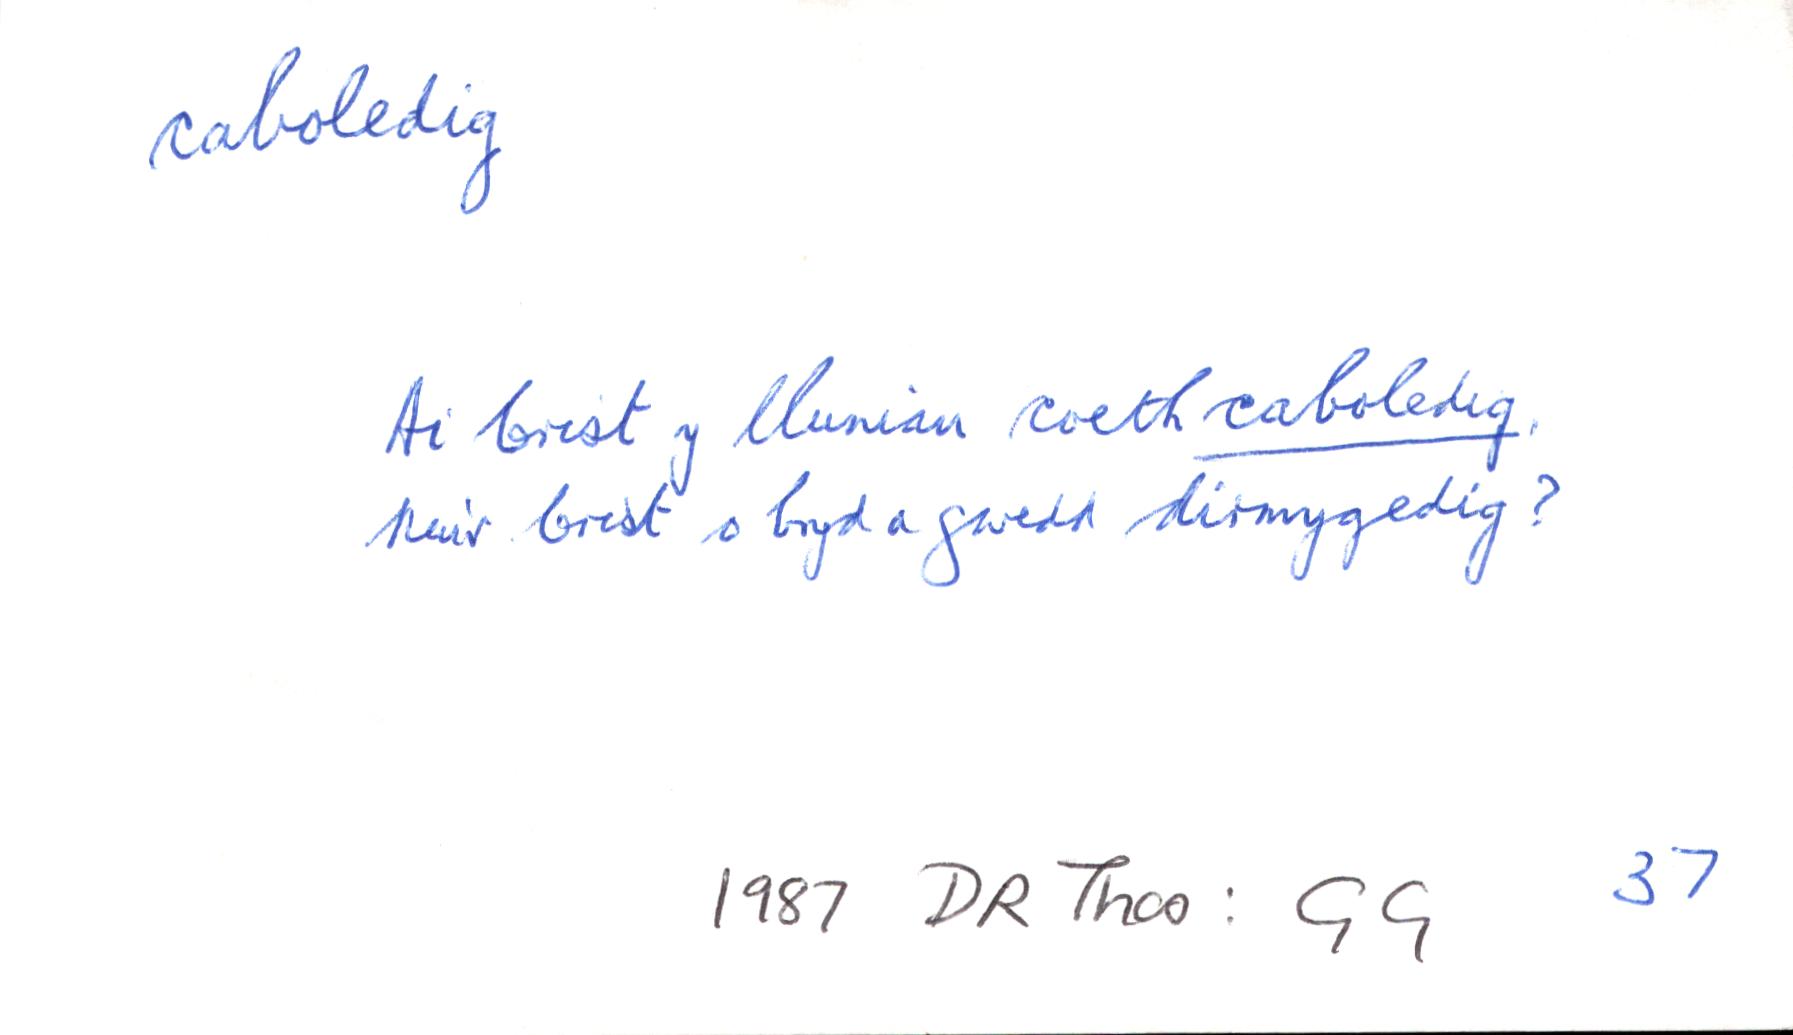 caboledig
Ai Crist y lluniau coeth caboledig,
Neu'r Crist o bryd a gwedd dirmygedig?
1987 DR Thos: GG 37